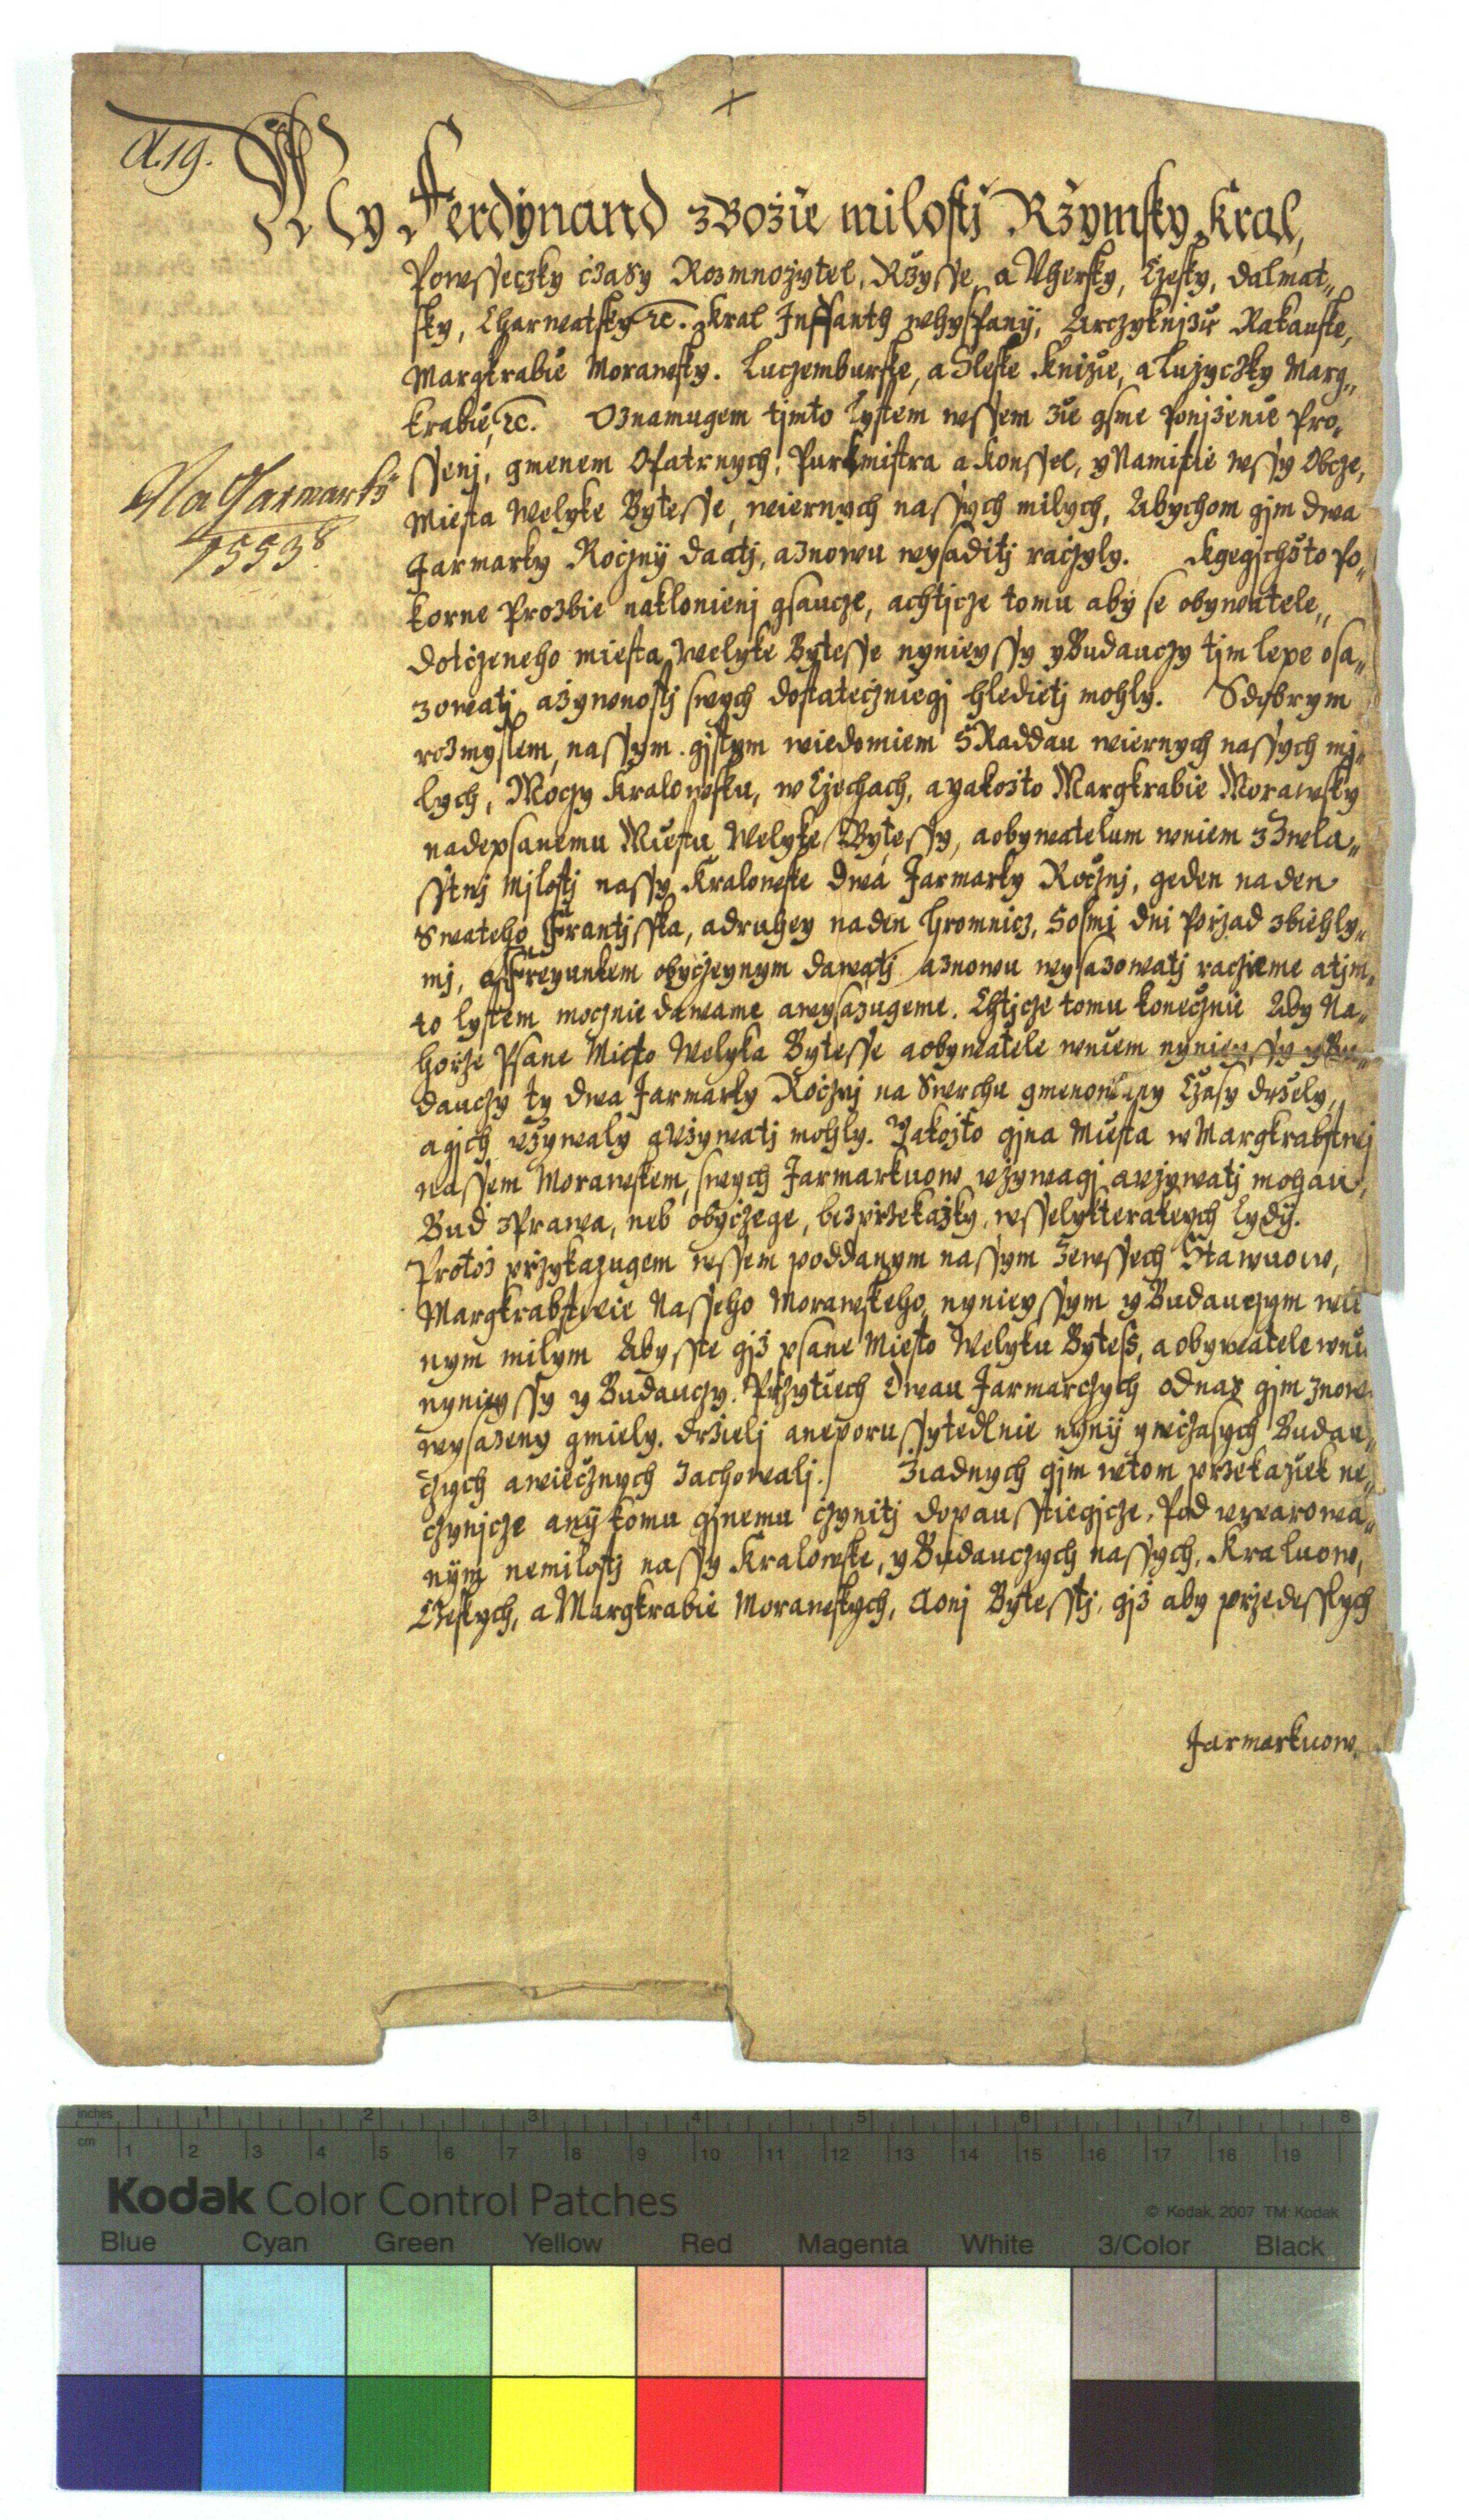 A. 19.
My Ferdynand z Božie milosti Ržymsky Kral,
Powsseczky čzasy Rozmnožytel, Ržysse, a Vhersky, Czesky, Dalmat„
sky, Charwatsky ꝛc. Kral Inffanth whyspanÿ, Arczyknjžie Rakauske,
Margkrabie Morawsky. Luczemburske, a Sleske Knižie, a Lužyczky Marg„
krabie, ꝛc. Oznamugem tjmto lystem wssem žie gsme ponjženie Pro„
ssenj, gmenem Opatrnych, Purkmistra a Konssel, y Namistie wssy Obcze,
Miesta Welyke Bytesse, wiernych nassych milych, Abychom gjm dwa
Jarmarky Rocžnÿ daatj, a znowu wysaditj račzyly. Kgegjchžto Po„
korne Prozbie naklonienj gsaucze, achtjcze tomu aby se obywatele„
dotčzeneho miesta Welyke Bytesse nynieyssy y Budauczy tjm lepe osa„
zowatj, a žywnostj swych dostatečzniegj hledietj mohly. S dobrym
rozmyslem, nassym gjstym wiedomiem s Raddau wiernych nassych mj„
lych, Moczy Kralowsku, w Czechach, a yakožto Margkrabie Morawsky
nadepsanemu Miestu Welyke Bytessy, a obywatelum wniem z Zwla„
sstnj Mjlostj nassy Kralowske Dwa Jarmarky Ročznj, geden na den
Swateho Frantjsska, a druhey na den Hromnicz, s osmi dni Pořzad zbiehly„
mj, a ffreyunkem obyčzeynym dawatj a znowu wysazowatj račzieme a tjm„
to lystem mocznie dawame a wysazugeme. Chtjcze tomu konečznie Aby Na„
hořze Psane Miesto Welyka Bytesse a obywatele wniem nynieyssy y Bu„
dauczy ty dwa Jarmarky Ročznj na Swerchu gmenowany Czasy drželÿ,
a gjch vžywaly a vžywatj mohly. Yakožto gjna Miesta w Margkrabstwj
nassem Morawskem, swych Jarmarkuow vžywagj a vžywatj mohau,
Bud z Prawa, neb obyčzege, bez přzekažky, wsselykterakych lydÿ.
Protož přzykazugem wssem poddanym nassym ze wssech Stawuow,
Margkrabstwie Nasseho Morawskeho, nynieyssym y Budauczym wie
nym milym Abysste gjž psane Miesto Welyku Bytess, a obywatele wnie
nynieyssy y Budauczy. Přzytiech Dwau Jarmarczych od nas gjm znow
wysazeny gmiely. drželj a neporussytedlnie nynÿ y wčzasych Budau„
czych a wiečznych Zachowalj. Žiadnych gjm wtom przekažiek ne„
czynjcze anÿ komu gjnemu čzynitj dopausstiegjcze, Pod vwarowa„
nÿm nemilostj nassy Kralowske, y Budauczych nassych, Kraluow,
Czeskych, a Margkrabie Morawskych, A onj Bytesstj, gjž aby przedesslych
Jarmarkuow
Na Jarmarkÿ
1553 8
Kodak Color Control Patches
© Kodak, 2007 TM: Kodak
inches 1 2 3 4 5 6 7 8
cm 1 2 3 4 5 6 7 8 9 10 11 12 13 14 15 16 17 18 19
Blue Cyan Green Yellow Red Magenta White 3/Color Black